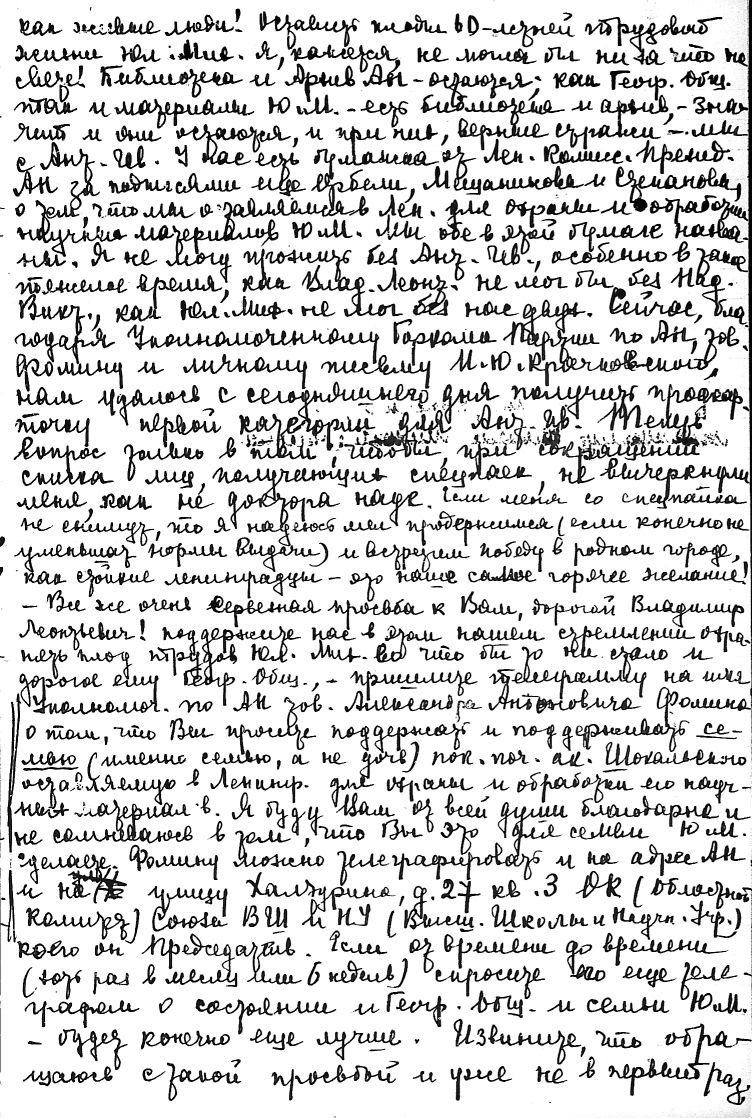 как живые люди! Оставить плоды 60-летней трудовой
жизни Юл. Мих. я, кажется, не могла бы ни за что на
свете! Библиотека и Архив АН - остаются; как Геогр. Общ.
так и материалы Ю.М. - есть библиотека и архив, - зна-
чит и они остаются, и при них, верные стражи - мы
с Ант. Ив. У нас есть бумажка от Лен. Комисс. Презид.
АН за подписями еще Орбели, Мещанинова и Степанова,
о том, что мы оставляемся в Лен. для охраны и обработки
научных материалов Ю.М. Мы обе в этой бумаге назва-
ны. Я не могу прожить без Ант. Ив., особенно в такое
тяжелое время, как Влад. Леонт. не мог бы без Над.
Викт., как Юл. Мих. не мог без нас двух. Сейчас, бла-
годаря Уполномоченному Горкома Партии по АН, тов.
Фомину и личному письму И.Ю. Крачковского,
нам удалось с сегодняшнего дня получить продкар-
точку первой категории для Ант. Ив. Теперь
вопрос только в том, чтобы, при сокращении
списка лиц, получающих спецпаек, не вычеркнули
меня, как не доктора наук. Если меня со спецпайка
не снимут, то я надеюсь мы продержимся (если конечно не
уменьшат нормы выдачи) и встретим победу в родном городе,
как стойкие ленинградцы - это наше самое горячее желание!
- Все же очень серьезная просьба к Вам, дорогой Владимир
Леонтьевич! поддержите нас в этом нашем стремлении охра-
нять плод трудов Юл. Мих. во что бы то ни стало и
дорогое ему Геогр. Общ., - пришлите телеграмму на имя
Уполномоч. по АН тов. Александра Антоновича Фомина
о том, что Вы просите поддержать и поддерживать се-
мью (именно семью, а не дочь) пок. поч. ак. Шокальского
оставляемую в Ленингр. для охраны и обработки его науч-
ных материал в. Я буду Вам от всей души благодарна и
не сомневаюсь в том, что Вы это для семьи Ю.М.
сделаете. Фомину можно телеграфировать и на адрес АН
и на улицу Халтурина, д. 27 кв. 3 ОК (Областной
Комитет) Союза ВШ и НУ (Высш. Школы и Научн. Учр.)
коего он Председатель. Если от времени до времени
(хоть раз в месяц или 6 недель) спросите его еще теле-
графом о состоянии и Геогр. Общ. и семьи Ю.М.
- будет конечно еще лучше. Извините, что обра-
щаюсь с такой просьбой и уже не в первый раз,